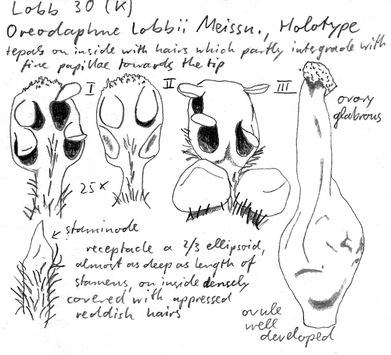 Lobb 30 (K)
Oreodaphne Lobbii Meissn., Holotype
tepals on inside with hairs which partly integrade with
fine papillae towards the tip
I
II
III
ovary
glabrous
25x
staminode
receptacle a 2/3 ellipsoid,
almost as deep as length of
stamens, on inside densely
covered with appressed
reddish hairs
ovule
well
developed